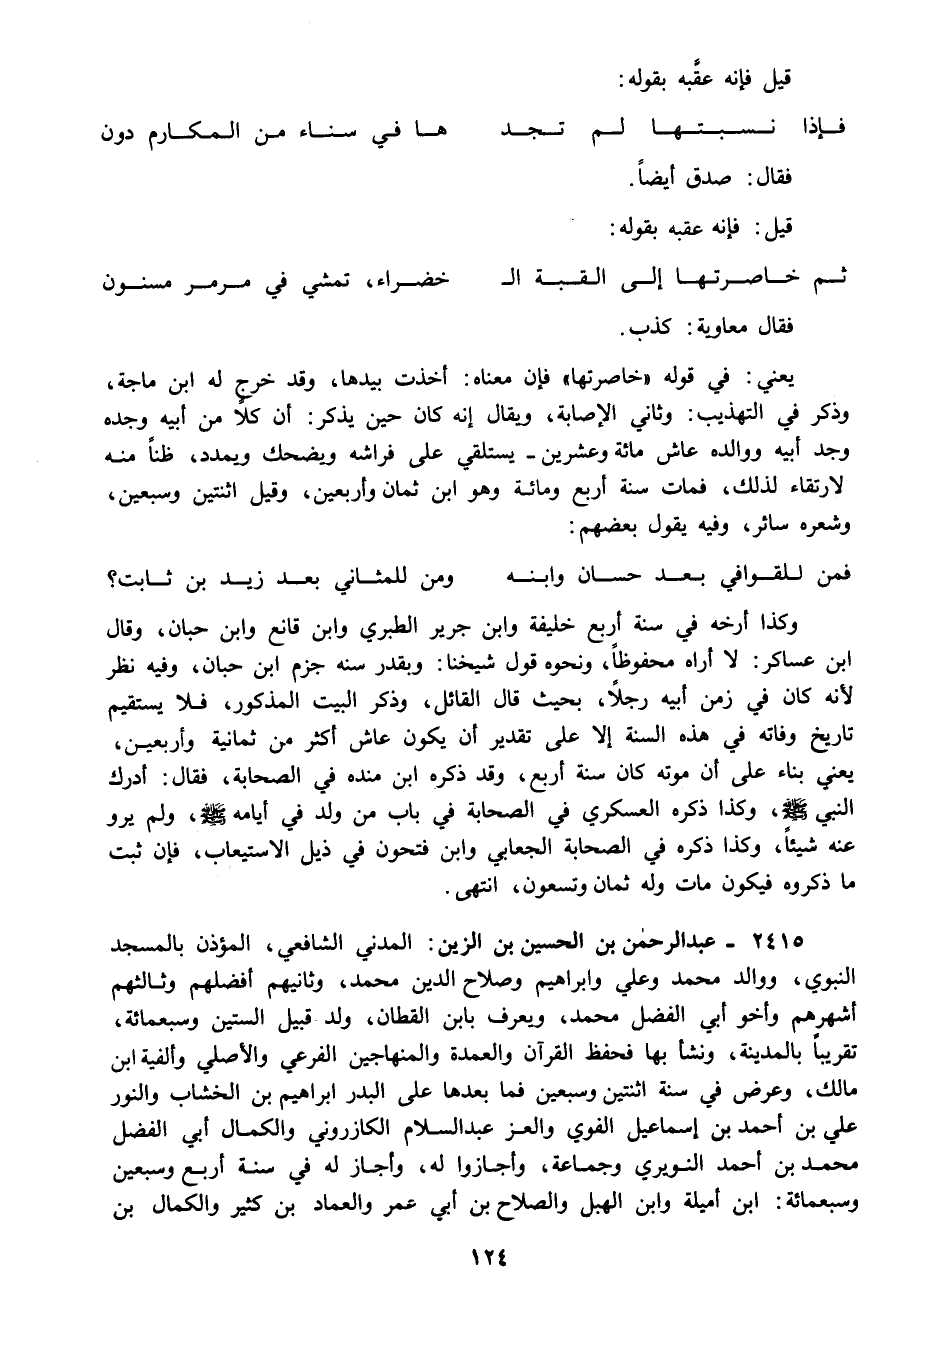 قيل فإنه عقَّبه بقوله:
فــإذا نــسـبـتـهـا لــم تــجــد هــا فــي سـنـاء مـن الـمكـارم دون
فقال: صدق أيضاً.
قيل: فإنه عقبه بقوله:
ثــم خـاصـرتـهـا إلـى القـبـة الـ خضـراء، تمشي في مـرمـر مسنـون
فقال معاوية: كذب.
يعني: في قوله «خاصرتها» فإن معناه: أخذت بيدها، وقد خرج له ابن ماجة،
وذكر في التهذيب: وثاني الإصابة، ويقال إنه كان حين يذكر: أن كلاً من أبيه وجده
وجد أبيه ووالده عاش مائة وعشرين - يستلقي على فراشه ويضحك ويمدد، ظناً منه
لارتقاء لذلك، فمات سنة أربع ومائة وهو ابن ثمان وأربعين، وقيل اثنتين وسبعين،
وشعره سائر، وفيه يقول بعضهم:
فمن للقـوافي بـعـد حسـان وابنـه ومن للمثـاني بعـد زيـد بن ثـابت؟
وكذا أرخه في سنة أربع خليفة وابن جرير الطبري وابن قانع وابن حبان، وقال
ابن عساكر: لا أراه محفوظاً، ونحوه قول شيخنا: وبقدر سنه جزم ابن حبان، وفيه نظر
لأنه كان في زمن أبيه رجلاً، بحيث قال القائل، وذكر البيت المذكور، فلا يستقيم
تاريخ وفاته في هذه السنة إلا على تقدير أن يكون عاش أكثر من ثمانية وأربعين،
يعني بناء على أن موته كان سنة أربع، وقد ذكره ابن منده في الصحابة، فقال: أدرك
النبي ﷺ، وكذا ذكره العسكري في الصحابة في باب من ولد في أيامه ﷺ، ولم يرو
عنه شيئاً، وكذا ذكره في الصحابة الجعابي وابن فتحون في ذيل الاستيعاب، فإن ثبت
ما ذكروه فيكون مات وله ثمان وتسعون، انتهى.
٢٤١٥ - عبدالرحمٰن بن الحسين بن الزين: المدني الشافعي، المؤذن بالمسجد
النبوي، ووالد محمد وعلي وابراهيم وصلاح الدين محمد، وثانيهم أفضلهم وثالثهم
أشهرهم وأخو أبي الفضل محمد، ويعرف بابن القطان، ولد قبيل الستين وسبعمائة،
تقريباً بالمدينة، ونشأ بها فحفظ القرآن والعمدة والمنهاجين الفرعي والأصلي وألفية ابن
مالك، وعرض في سنة اثنتين وسبعين فما بعدها على البدر ابراهيم بن الخشاب والنور
علي بن أحمد بن إسماعيل الفوي والعز عبدالسلام الكازروني والكمال أبي الفضل
محمد بن أحمد النويري وجماعة، وأجازوا له، وأجاز له في سنة أربع وسبعين
وسبعمائة: ابن أميلة وابن الهبل والصلاح بن أبي عمر والعماد بن كثير والكمال بن
١٢٤